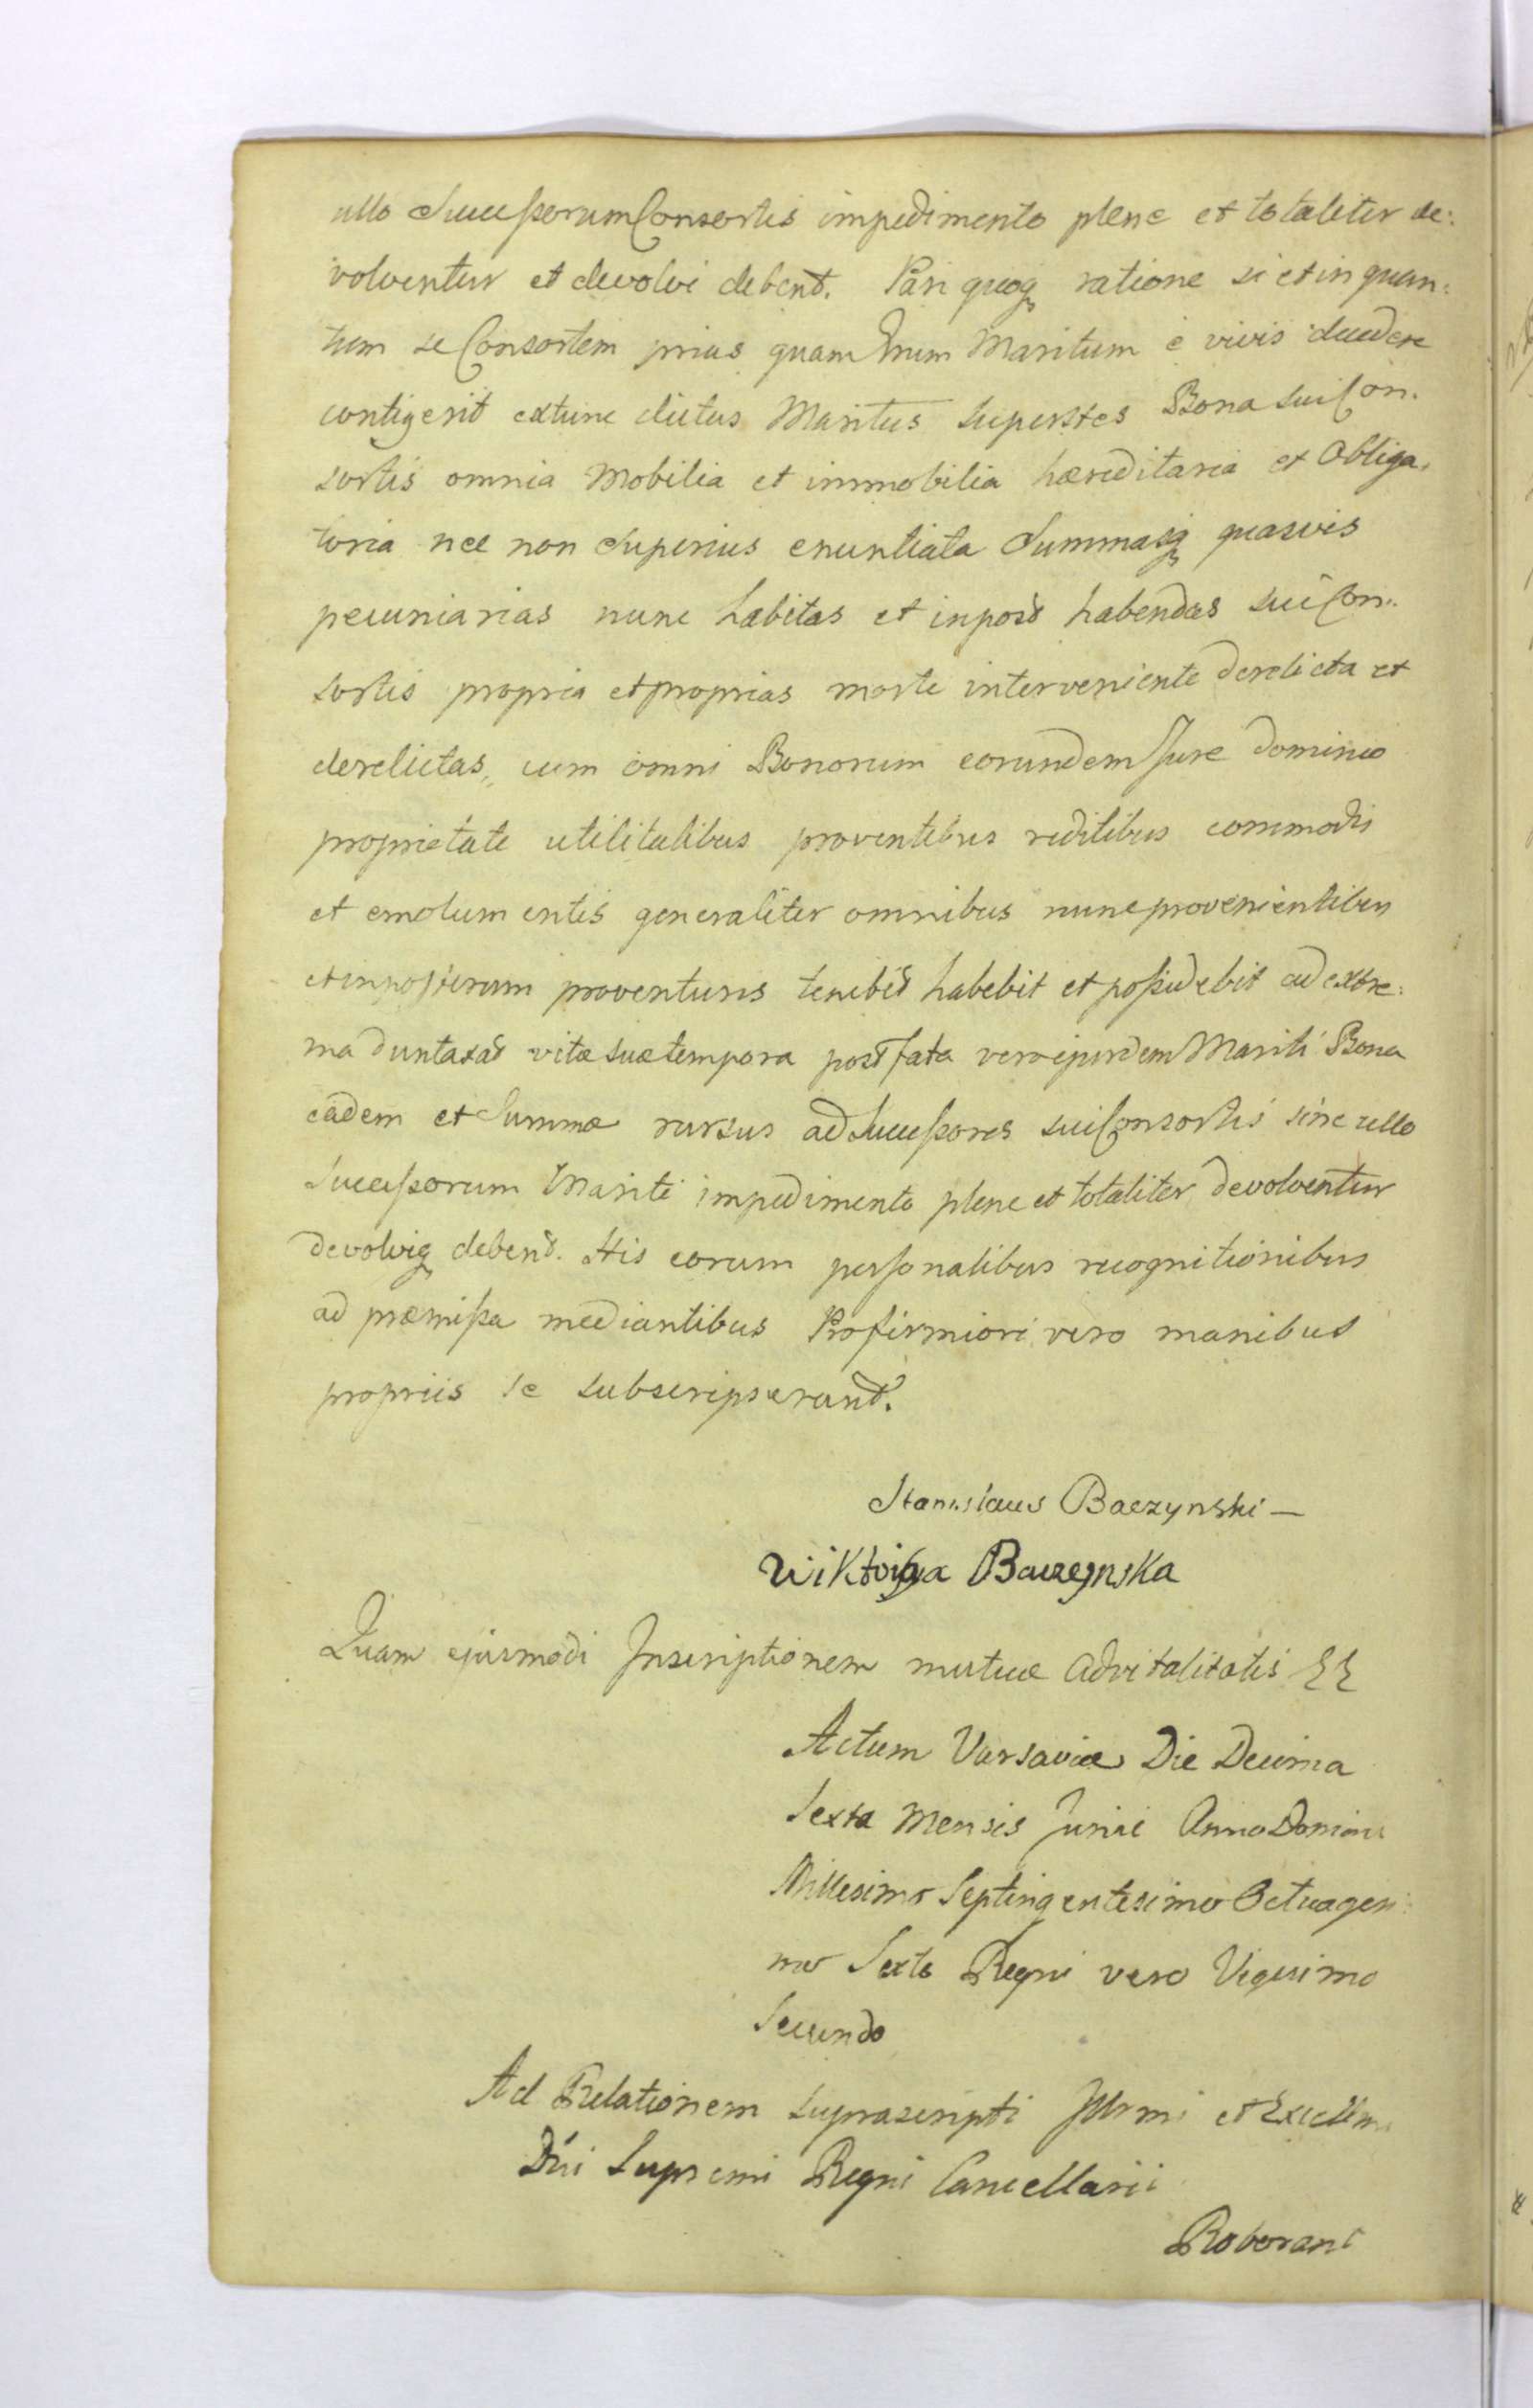 ullo Successorum Consortis impedimento plene et totaliter de:
volventur et devolvi debent. Pari quoq ratione si et in quan:
tum se Consortem prius quam Dnum Maritum e vivis decedere
contigerit extunc dictus Maritus superstes Bona sui Con:
sortis omnia Mobilia et immobilia hæreditaria et Obliga:
toria nec non superius enuntiata Summasq quasvis
pecuniarias nunc habitas et in post habendas sui Con:
sortis propria et proprias morte interveniente derelicta et
derelictas, cum omni Bonorum eorundem Jure dominio
proprietate utilitatibus proventibus reditibus commodis
et emolumentis generaliter omnibus nunc provenientibus
et in posterum proventuris tenebit habebit et possidebit ad extre:
ma duntaxat vitæ suæ tempora post fata vero ejusdem Mariti Bona
eadem et Summæ rursus ad Successores sui Consortis sine ullo
Successorum Mariti impedimento plene et totaliter devolventur
devolviq debent. His eorum personalibus recognitionibus
ad præmissa mediantibus Pro firmiori vero manibus
propriis se subscripserunt.
Stanislaus Baczynski —
Wiktoria Baczynska
Quam ejusmodi Inscriptionem mutuæ advitalitatis
Actum Varsaviæ Die Decima
Sexta Mensis Junii Anno Domini
Millesimo Septingentesimo Octuagesi:
mo Sexto Regni vero Vigesimo
Secundo
Ad Relationem suprascripti Illrmi et Excellmi
Dni Supremi Regni Cancellarii
Roborant